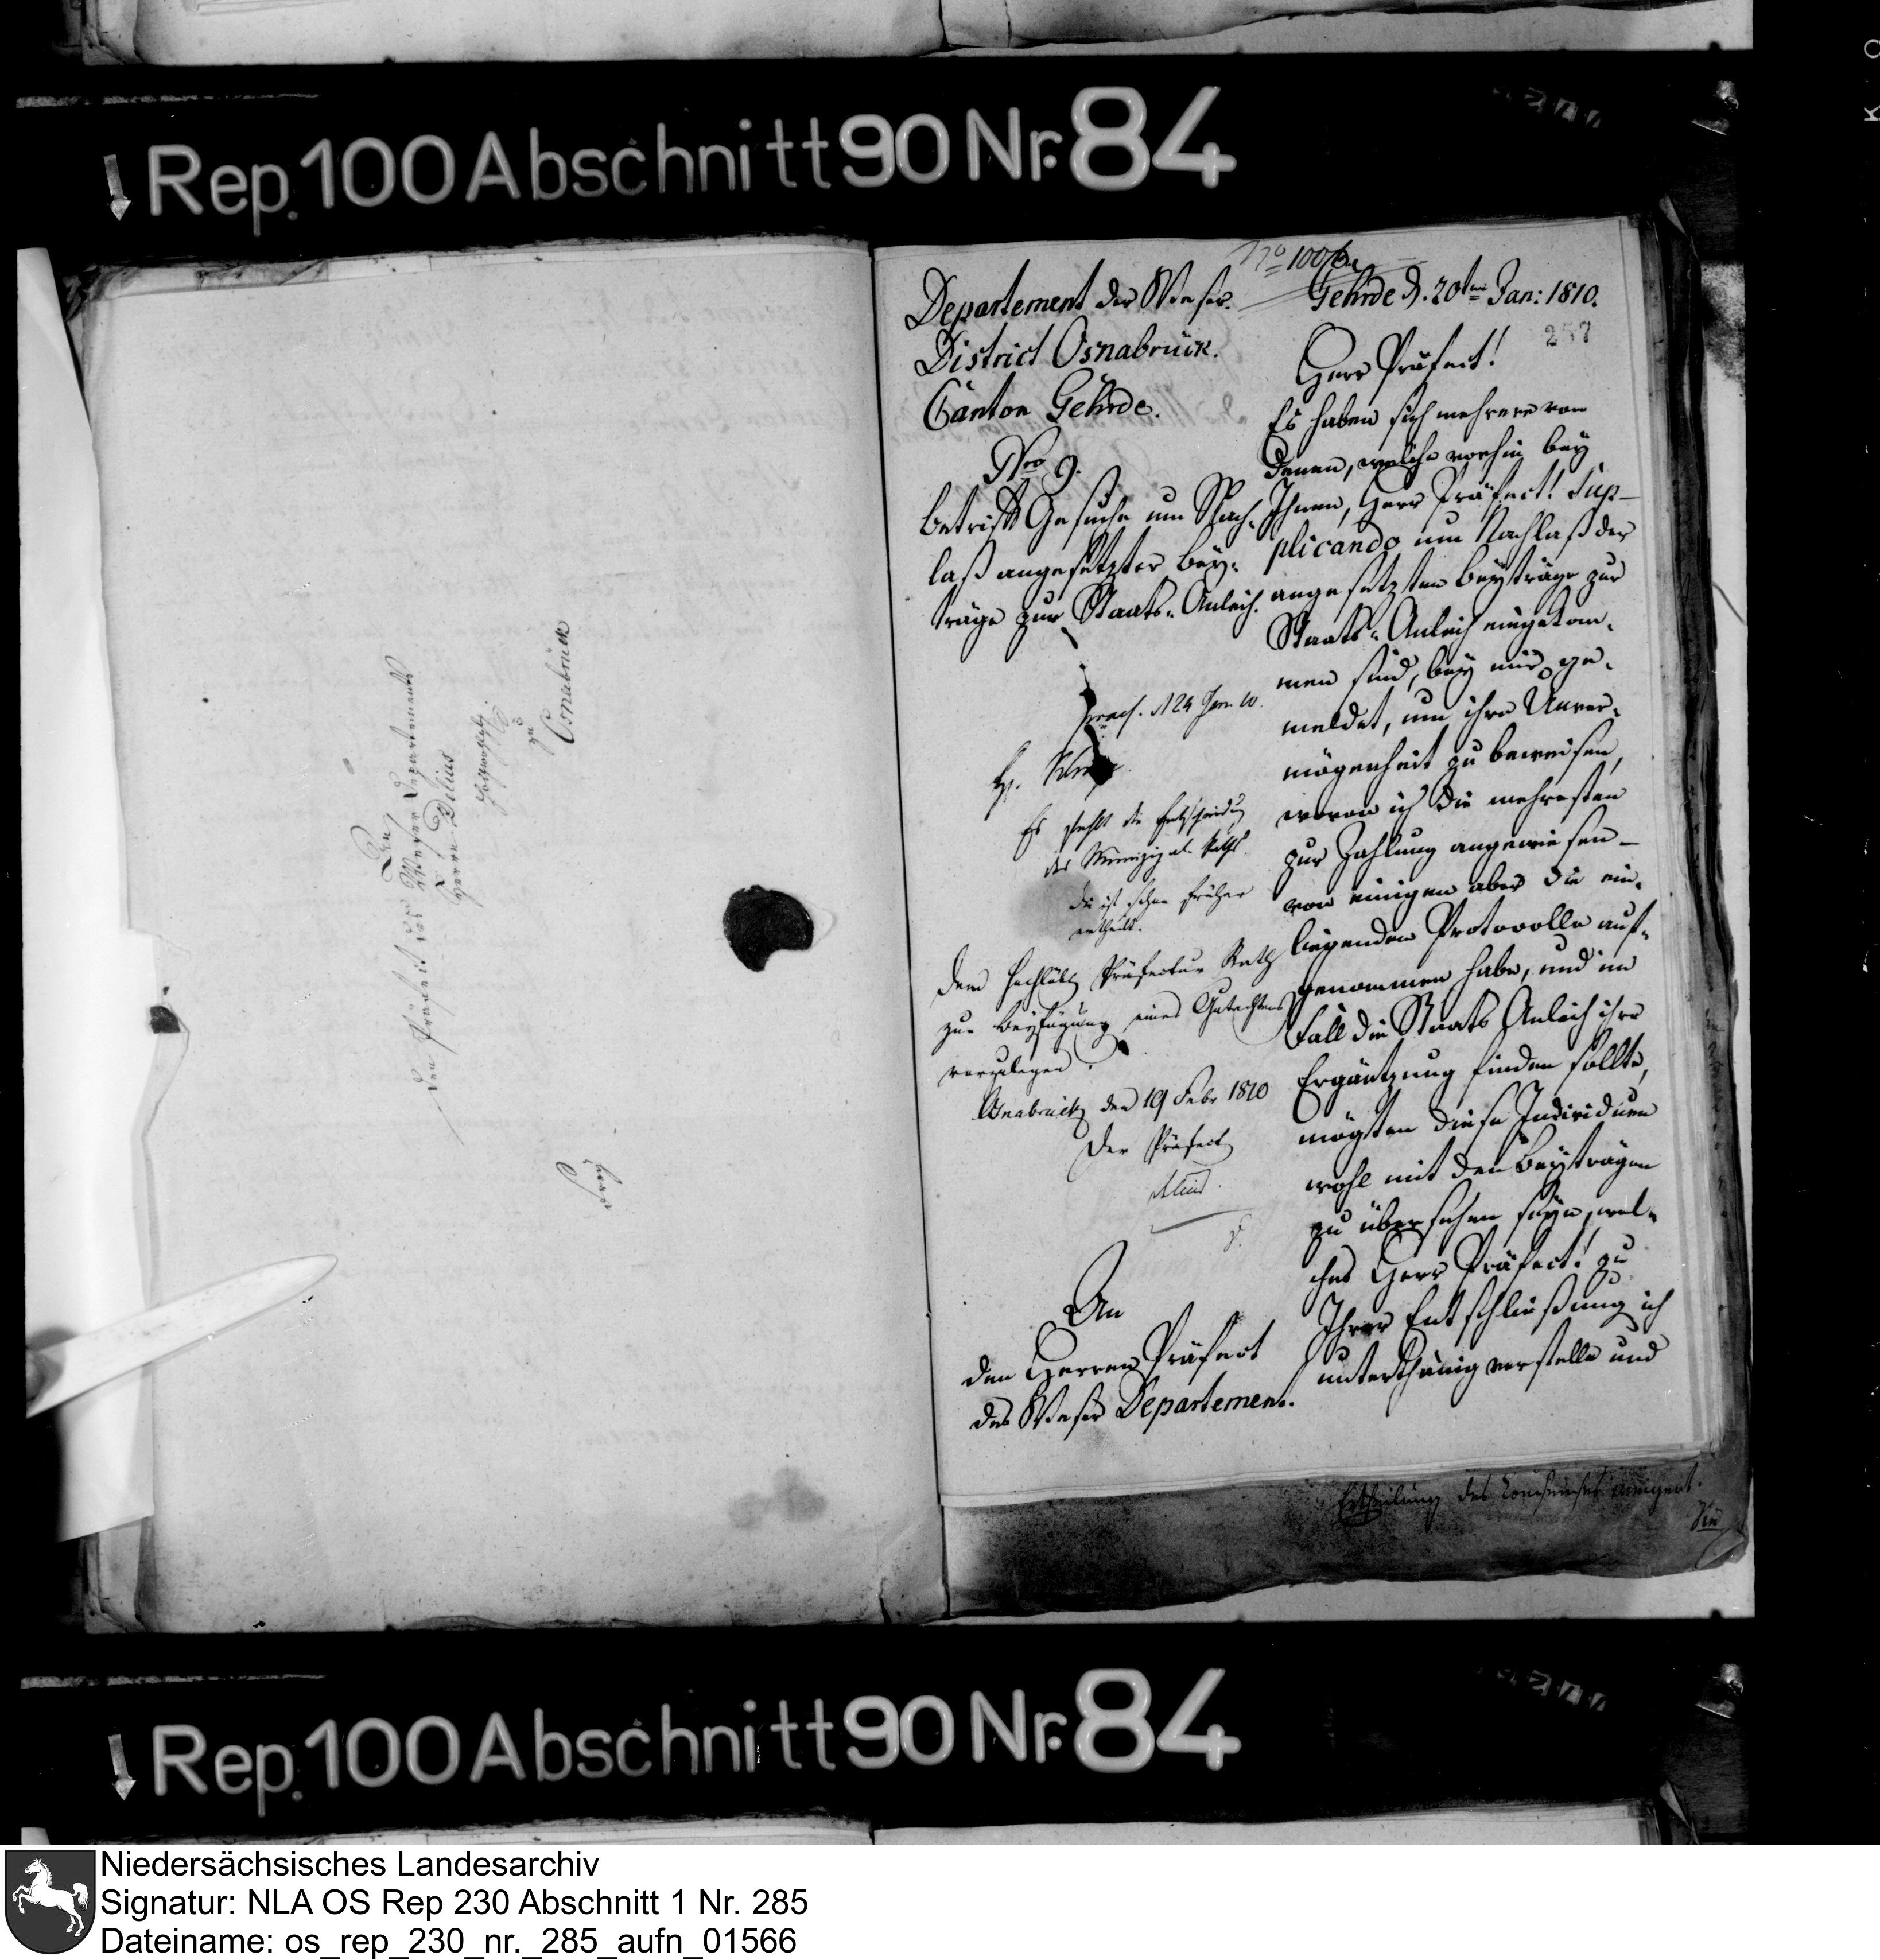 Rep. 100 Abschnitt 90 Nr. 84
Den
Den Präfect des Weser Departements
Herrn Delius
zu
Osnabrück
Frey
No 1006
Departement der Weser.
District Osnabrück.
Canton Gehrde.
Nro 9.
betrifft Gesuche um Nach-
laß angesetzter Bey-
träge zur Staats-Anleih.
praes. d 24 Jan. 10.
Es fehlt die Entscheidung
des Munizipal-Raths
die ist schon früher
ertheilt.
Dem Hochlöbl Präfectur Rath
zur Beyfügung eines Gutachtens
vorzulegen.
Osnabrück den 19 Febr 1810
Der Präfect
Delius.
An
den Herren Präfect
des Weser Departement.
Gehrde d. 20ten Jan: 1810.
257
Herr Präfect!
Es haben sich mehrere von
denen, welche vorhin bey
Ihnen, Herr Präfect! sup-
plicando um Nachlaß der
angesetzten Beyträge zur
Staats-Anleih eingekom-
men sind, bey mir ge-
meldet, um ihre Unver-
mögenheit zu beweisen,
wovon ich die mehresten
zur Zahlung angewiesen —
von einigen aber die ein-
liegenden Protocolle auf-
genommen habe, und im
Fall die Staats Anleih ihre
Ergäntzung finden sollte,
mögten diese Individuen
wohl mit den Beyträgen
zu übersehen seyn, wel-
ches Herr Präfect! zu
Ihrer Entschließung ich
unterthänig verstelle und
Ertheilung des
Rep. 100 Abschnitt 90 Nr. 84
Niedersächsisches Landesarchiv
Signatur: NLA OS Rep 230 Abschnitt 1 Nr. 285
Dateiname: os_rep_230_nr._285_aufn_01566